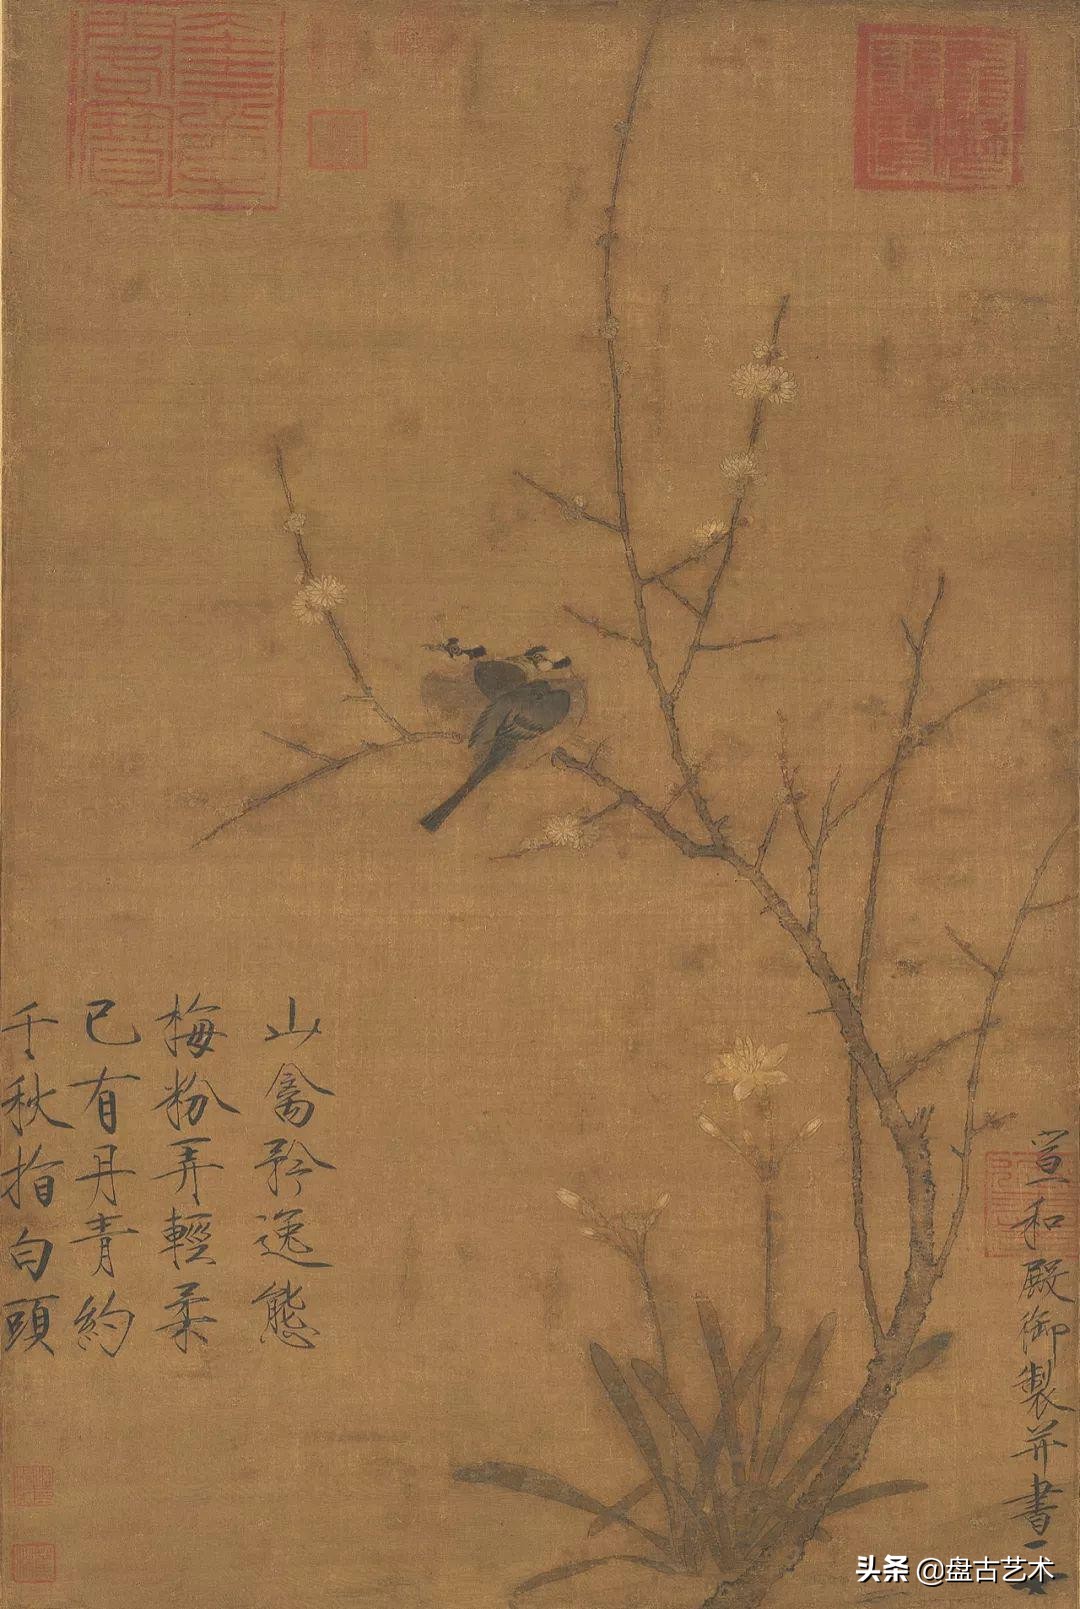 山禽矜逸態
梅粉弄輕柔
已有丹青約
千秋指白頭
宣和殿御製并書
头条 @盘古艺术